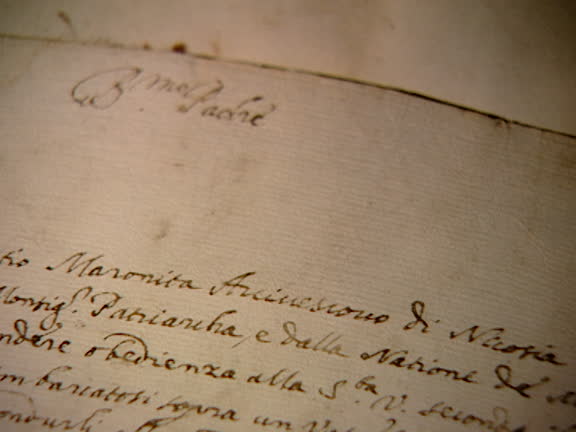 B.mo Padre
tio Maronita Arciuescouo di Nicosia
Monsig.r Patriarcha, e dalla Natione del
ndere obedienza alla S.ta V. second
imbarcatosi sopra un
ondurli